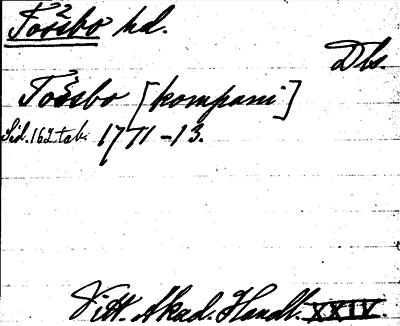 Tössbo hd.
Dls.
Tössbo [kompani]
Sid. 162 tab. 1771-13.
Vitt. Akad. Handl. XXIV.